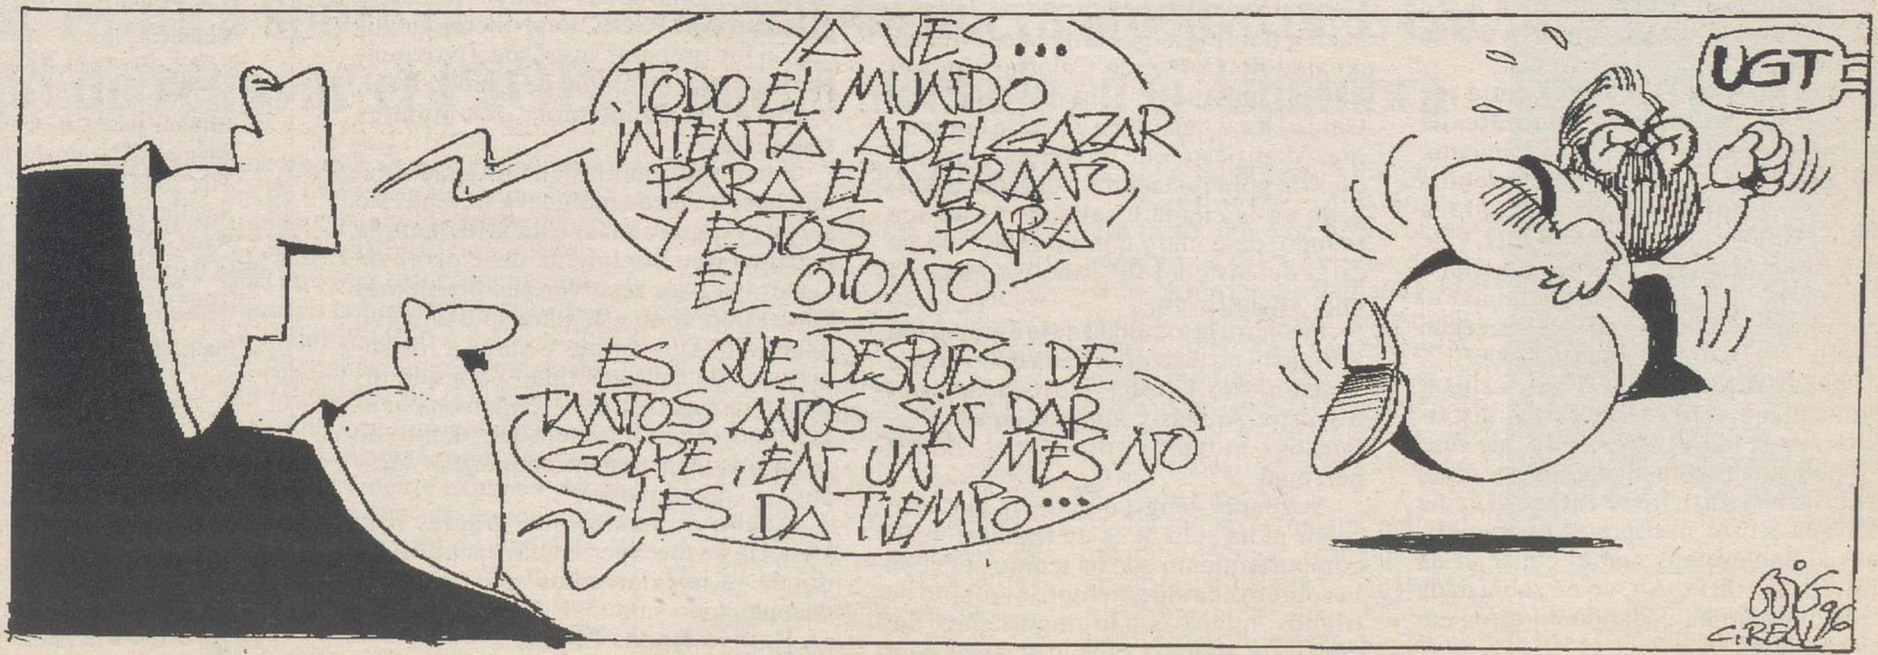 YA VES...
TODO EL MUNDO
INTENTA ADELGAZAR
PARA EL VERANO,
Y ESTOS PARA
EL OTOÑO.
ES QUE DESPUES DE
TANTOS AÑOS SIN DAR
GOLPE, EN UN MES NO
LES DA TIEMPO...
UGT
96
C. REAL